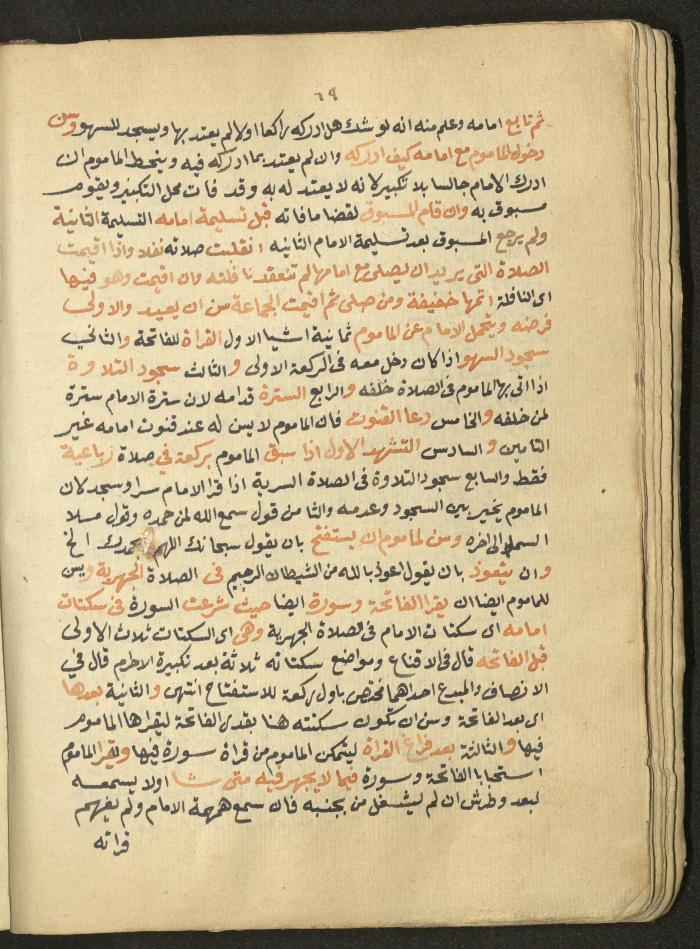 ٦٩
ثم تابع امامه وعلم منه انه لو شك هل ادركه راكعا اولا لم يعتد بها ويسجد للسهو وسن
دخول الماموم مع امامه كيف ادركه وان لم يعتد بما ادركه فيه وينحط الماموم ان
ادرك الامام جالسا بلا تكبير لانه لا يعتد له به وقد فات محل التكبير ويقوم
مسبوق به وان قام المسبوق لقضا ما فاته قبل تسليمة امامه التسليمة الثانية
ولم يرجع المسبوق بعد تسليمة الامام الثانيه انقلبت صلاته نفلا واذا اقيمت
الصلاة التي يريد ان يصلي مع امامها لم تنعقد نافلته وان اقيمت وهو فيها
اى النافلة اتمها خفيفة ومن صلى ثم اقيمت الجماعة سن ان يعيد والاولى
فرضه ويتحمل الامام عن الماموم ثمانية اشيا الاول القراة للفاتحة والثاني
سجود السهو اذا كان دخل معه فى الركعة الاولى والثالث سجود التلاوة
اذا اتى بها الماموم فى الصلاة خلفه والرابع السترة قدامه لان سترة الامام سترة
لمن خلفه والخامس دعا القنوت فان الماموم لا يسن له عند قنوت امامه غير
التامين والسادس التشهد الاول اذا سبق الماموم بركعة في صلاة رباعية
فقط والسابع سجود التلاوة فى الصلاة السرية اذا قرا الامام سرا وسجد كان
الماموم يخير بين السجود وعدمه والثامن قول سمع الله لمن حمده وقول ملا
السما الى اخره وسن لماموم ان يستفتح بان يقول سبحانك اللهم وبحمدك الخ
وان يتعوذ بان يقول اعوذ بالله من الشيطان الرجيم فى الصلاة الجهرية ويسن
للماموم ايضا ان يقرا الفاتحة وسورة ايضا حيث شرعت السورة فى سكتات
امامه اى سكتات الامام فى الصلاة الجهرية وهى اى السكتات ثلاث الاولى
قبل الفاتحه قال فى الاقناع ومواضع سكتاته ثلاثة بعد تكبيرة الاحرام قال في
الانصاف والمبدع احداهما تختص باول ركعة للاستفتاح انتهى والثانية بعدها
اى بعد الفاتحة وسن ان تكون سكتته هنا بقدر الفاتحة ليقراها الماموم
فيها والثالثة بعد فراغ القراة ليتمكن الماموم من قراة سورة فيها ويقرا الماموم
استحبابا الفاتحة وسورة فيما لا يجهر فيه متى شا اولا يسمعه
لبعد وطرش ان لم يشغل من بجنبه فان سمع همهمة الامام ولم يفهم
قراته